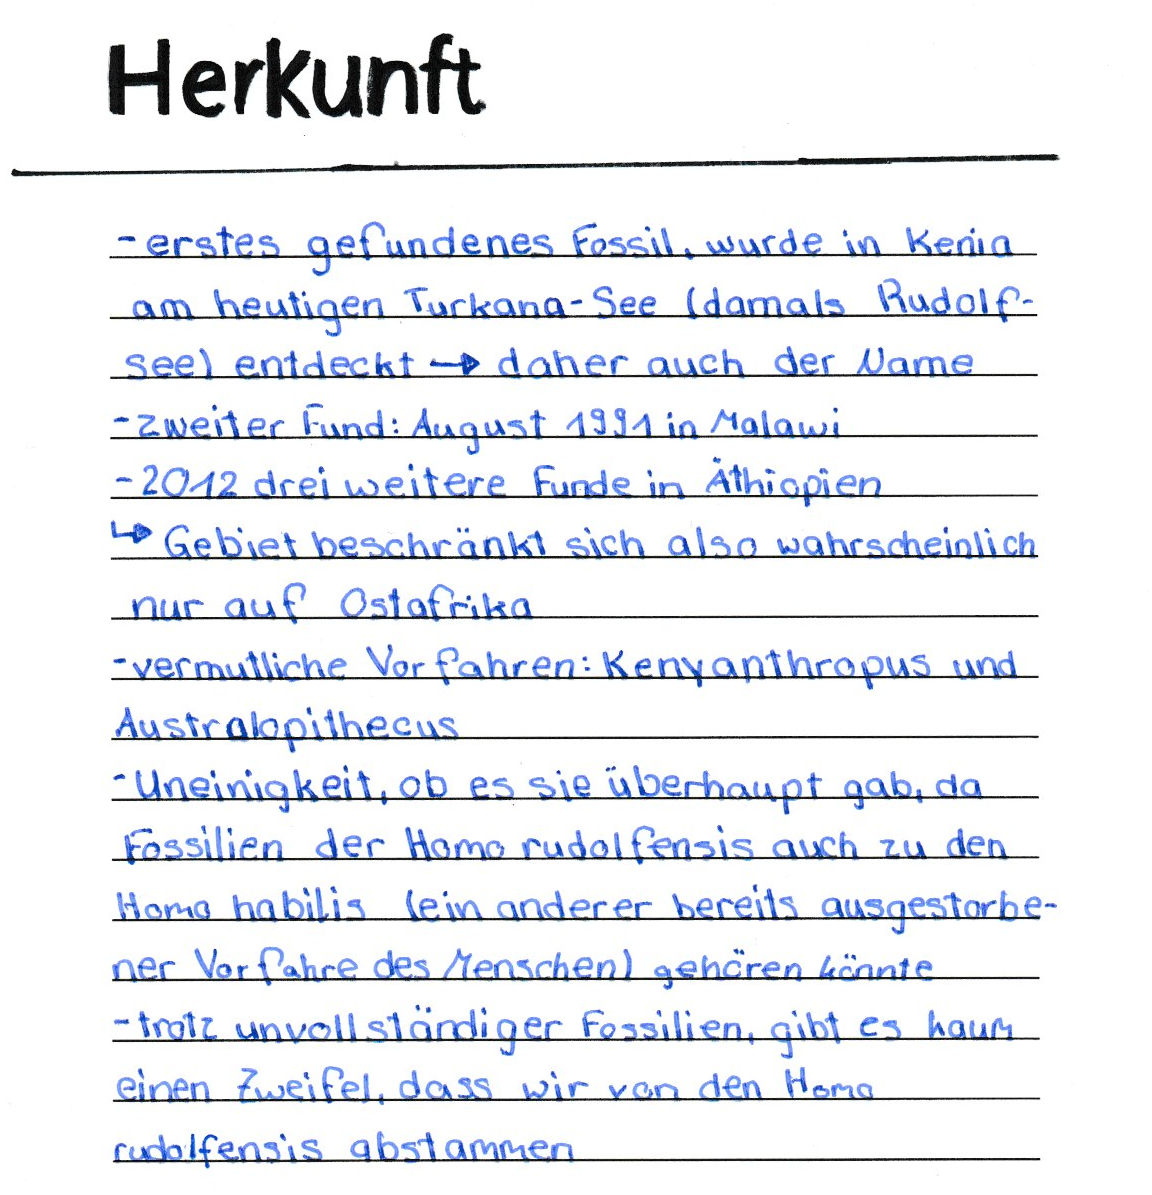 Herkunft
- erstes gefundenes Fossil, wurde in Kenia
am heutigen Turkana-See (damals Rudolf-
see) entdeckt → daher auch der Name
- zweiter Fund: August 1991 in Malawi
- 2012 drei weitere Funde in Äthiopien
↳ Gebiet beschränkt sich also wahrscheinlich
nur auf Ostafrika
- vermutliche Vorfahren: Kenyanthropus und
Australopithecus
- Uneinigkeit, ob es sie überhaupt gab, da
Fossilien der Homo rudolfensis auch zu den
Homo habilis (ein anderer bereits ausgestorbe-
ner Vorfahre des Menschen) gehören könnte
- trotz unvollständiger Fossilien, gibt es kaum
einen Zweifel, dass wir von den Homo
rudolfensis abstammen